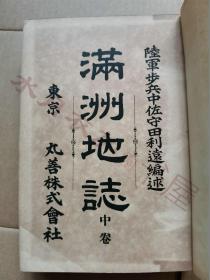 陸軍步兵中佐守田利遠編述
滿洲地誌
中卷
東京
丸善株式會社